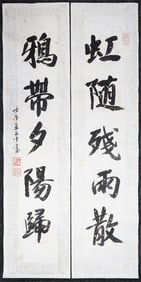 虹随残雨散
鴉帶夕陽歸